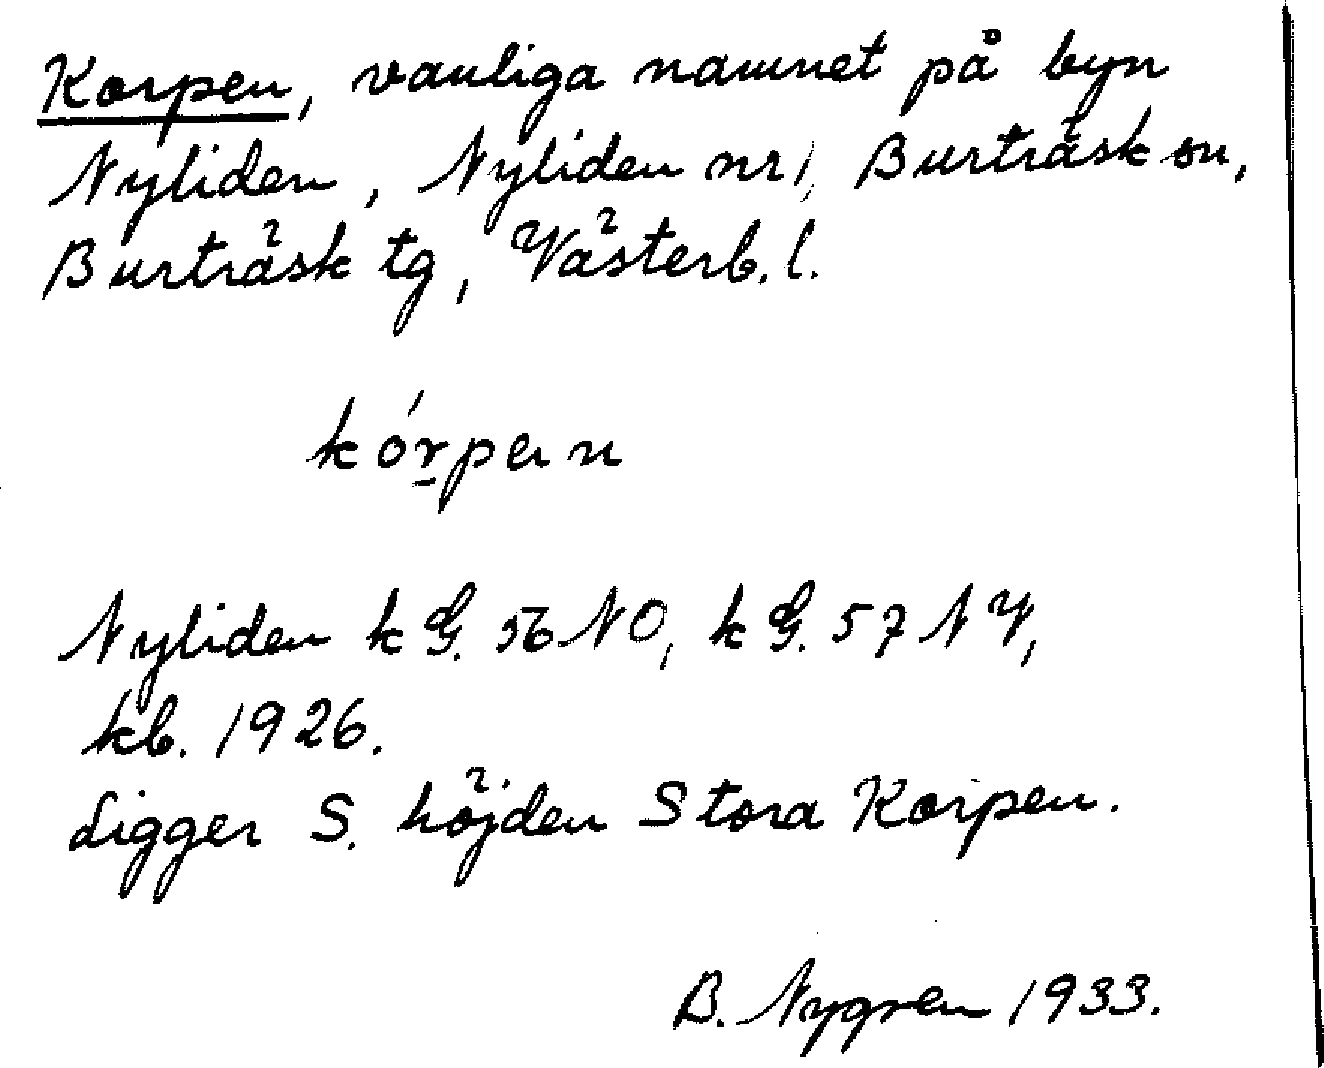 Korpen, vanliga namnet på byn
Nyliden, Nyliden nr 1, Burträsk sn,
Burträsk tg, Västerb. l.
kórpen
Nyliden k G. 56 NO, k G. 57 NV,
kb. 1926.
Ligger S. höjden Stora Korpen.
B. Nygren 1933.